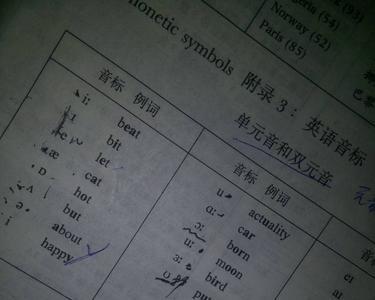 (93)
geria (54)
Norway (52)
Paris (85)
巴黎
honetic symbols 附录3：英语音标
单元音和双元音
音标 例词
i: beat
ɪ bit
e let
æ cat
ɒ hot
ʌ but
ə about
i happy
音标 例词
u actuality
ɑ: car
ɔ: born
u: moon
ɜ: bird
ʊ pu
音
eɪ
aɪ